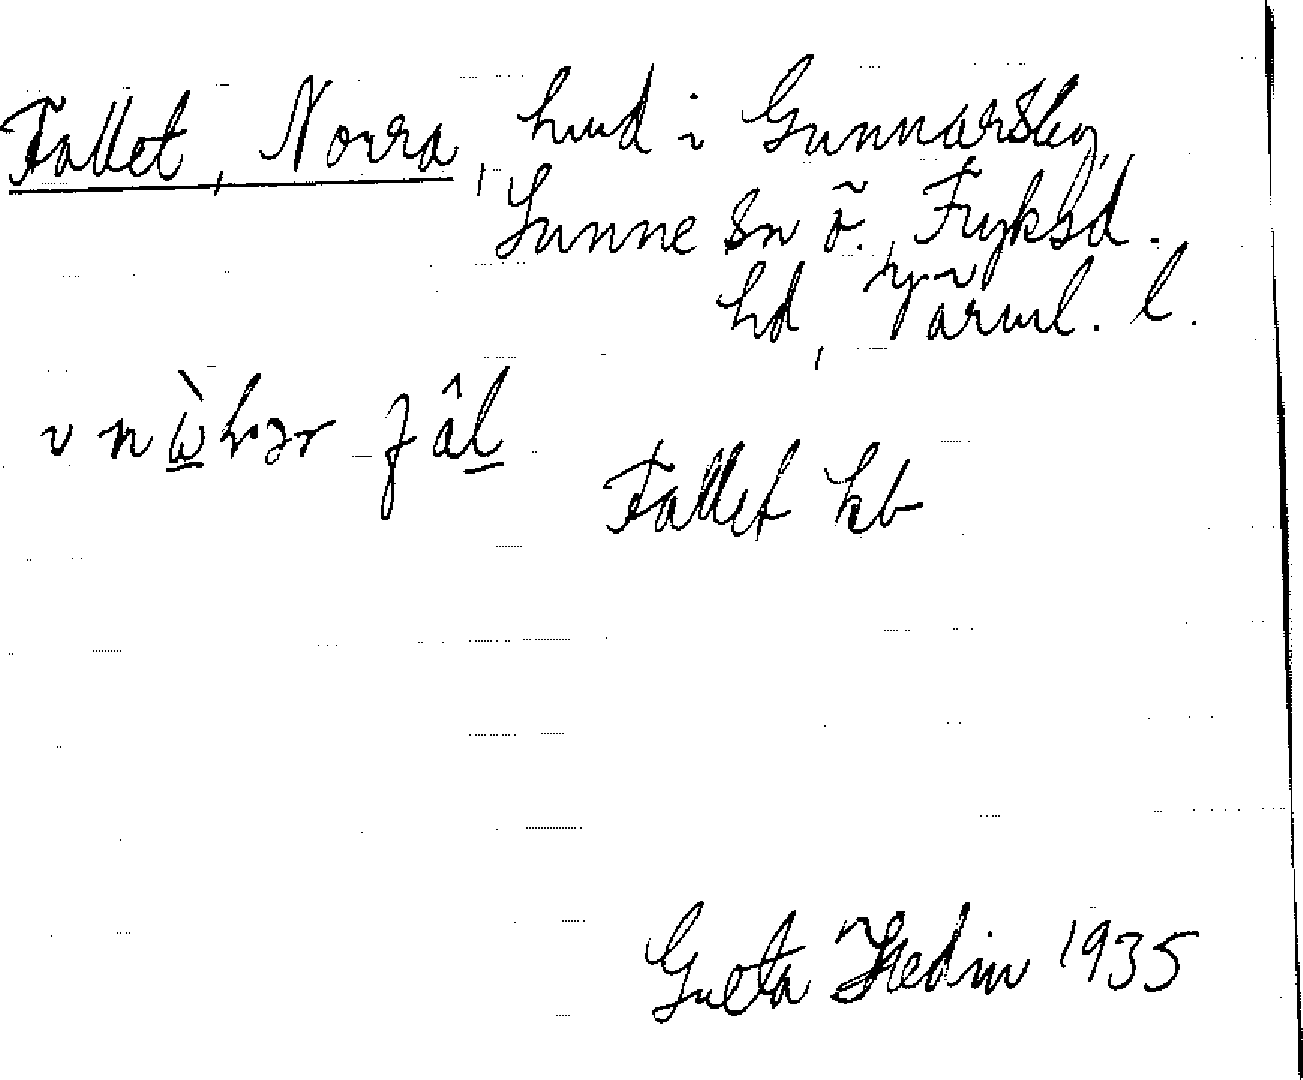 Fallet, Norra, hmd i Gunnarsby,
Sunne sn ö. Fryksd.
hd, Värml. l.
Fallet kb
Greta Hedin 1935